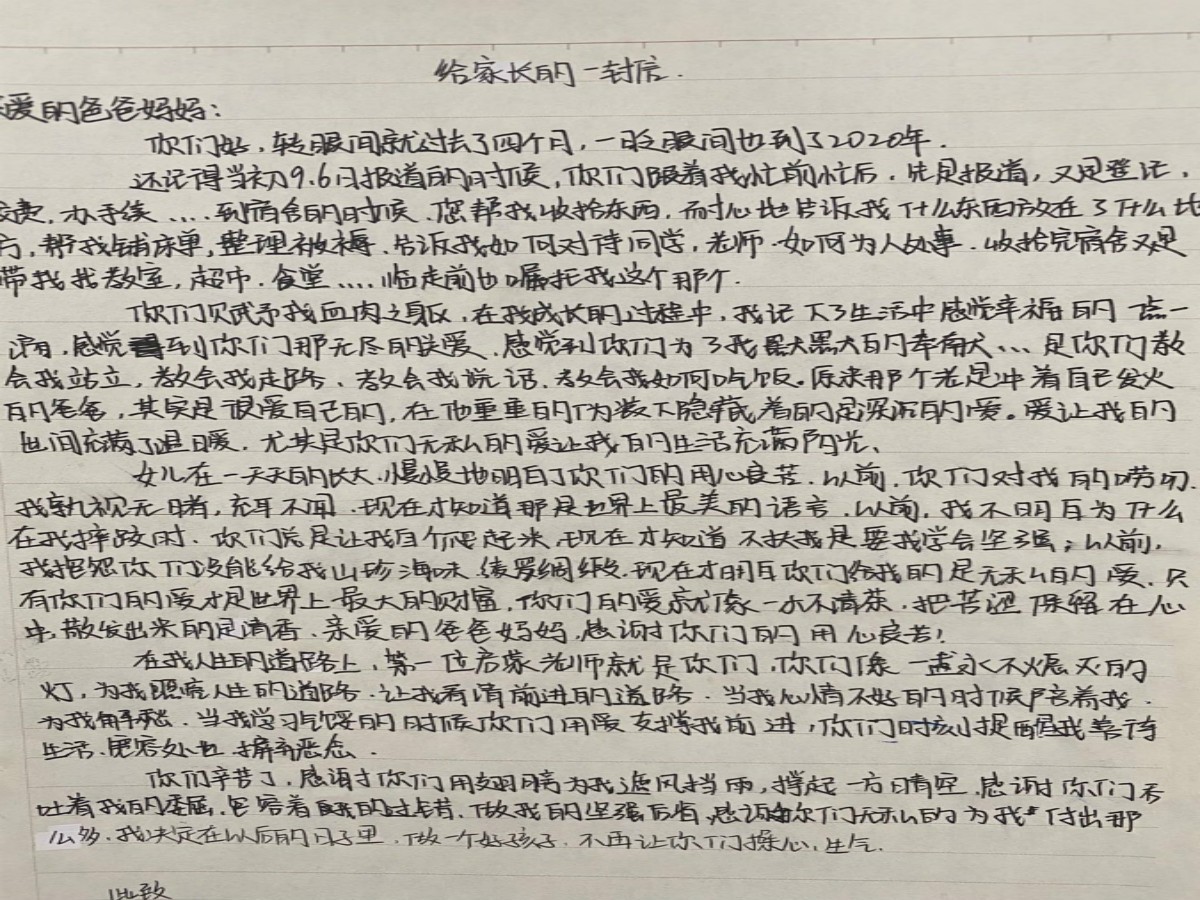 给家长的一封信.
亲爱的爸爸妈妈:
你们好,转眼间就过去了四个月,一眨眼间也到了2020年.
还记得当初9.6日报道的时候,你们跟着我忙前忙后.先是报道,又是登记,
交费,办手续....到宿舍的时候.您帮我收拾东西,耐心地告诉我什么东西放在了什么地
方,帮我铺床单,整理被褥.告诉我如何对待同学,老师.如何为人处事.收拾完宿舍又是
带我找教室,超市.食堂....临走前也嘱托我这个那个.
你们赋予我血肉之身区,在我成长的过程中,我记下了生活中感觉幸福的一点一
滴,感觉到你们那无尽的关爱.感觉到你们为了我黑大黑大的牵肠...是你们教
会我站立,教会我走路、教会我说话.教会我如何吃饭。原来那个老是冲着自己发火
的爸爸,其实是很爱自己的,在他重重的伪装下隐藏着的是深沉的爱。爱让我的
世间充满了温暖.尤其是你们无私的爱让我的生活充满阳光、
女儿在一天天的长大,慢慢地明白了你们的用心良苦.以前,你们对我的唠叨.
我熟视无睹,充耳不闻.现在才知道那是世界上最美的语言.以前,我不明白为什么
在我摔跤时.你们总是让我自个爬起来,现在才知道不扶我是要我学会坚强;以前,
我抱怨你们没能给我山珍海味.绫罗绸缎.现在才明白你们给我的是无私的爱.只
有你们的爱才是世界上最大的财富,你们的爱就像一水不清茶.把苦涩保留在心
中,散发出来的是清香.亲爱的爸爸妈妈,感谢你们的用心良苦!
在我人生的道路上,第一位启蒙老师就是你们,你们像一盏永不熄灭的
灯,为我照亮人生的道路.让我看清前进的道路.当我心情不好的时候陪着我.
为我解愁.当我学习气馁的时候你们用爱支撑我前进,你们时刻提醒我善待
生活.宽容处世 摒弃恶念.
你们辛苦了,感谢你们用翅膀为我遮风挡雨,撑起一方晴空.感谢你们忍
让着我的委屈.包容着我的过错.做我的坚强后盾,感谢你们无私的为我付出那
么多.我决定在以后的日子里.做一个好孩子.不再让你们操心,生气.
此致